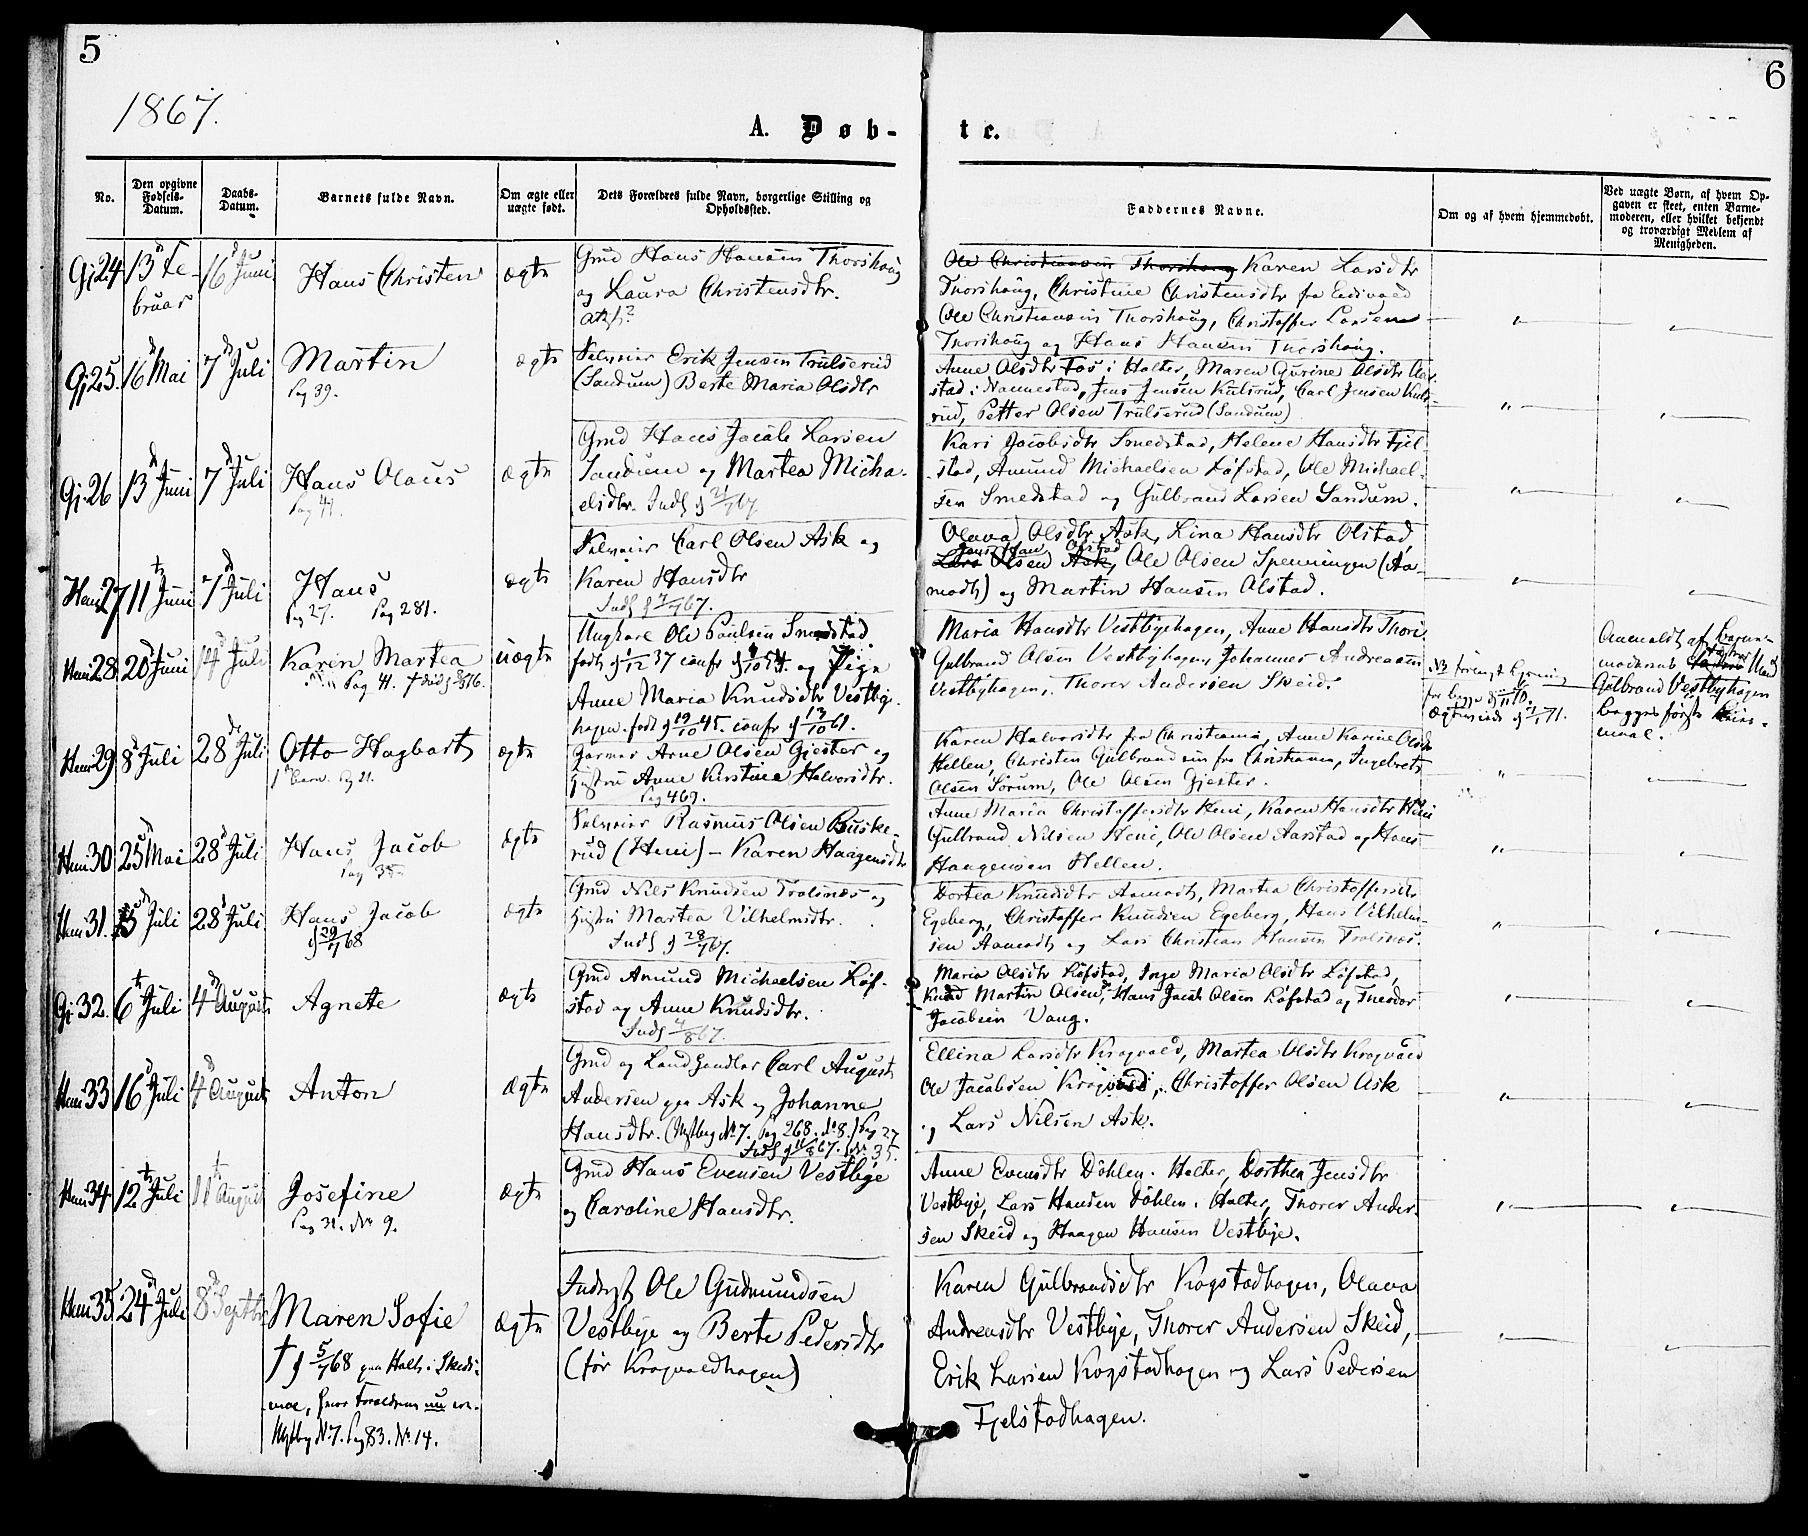 5
6
1867.
A. Døb-
te.
No.
Den opgivne Fødsels-Datum.
Daabs-Datum.
Barnets fulde Navn.
Om ægte eller uægte født.
Dets Forældres fulde Navn, borgerlige Stilling og Opholdssted.
Faddernes Navne.
Om og af hvem hjemmedøbt.
Ved uægte Børn, af hvem Opgaven er skeet, enten Barnemoderen, eller hvilket bekjendt og troværdigt Medlem af Menigheden.
Gj 24
13d Februar
16d Juni
Hans Christen
Ægte
Grmd Hans Hansen Thorshoug
og Laura Christensdtr.
Ole Christiansen Thorshoug Karen Larsdtr
Thorshoug, Christine Christensdtr fra Eidsvold
Ole Christiansen Thorshoug, Christoffer Larsen
Thorshoug og Hans Hansen Thorshoug.
Gj 25.
16d Mai
7d Juli
Martin
Pag 39.
ægte
Selveier Erik Jensen Trulserud
(Sandum) Berte Maria Olsdtr
Anne Olsdtr Fos i Holter, Maren Gurine Olsdtr Aar-
stad i Nannestad, Jens Jensen Kulsrud, Carl Jensen Kuls-
rud, Petter Olsen Trulserud (Sandum)
Gj 26
13d Juni
7d Juli
Hans Olaus
Pag 41.
ægte
Grmd Hans Jacob Larsen
Sandum og Martea Micha-
elsdtr. Inds d 21/7 67
Kari Jacobsdtr Smedstad, Helene Hansdtr Fjel-
stad, Amund Michaelsen Løfstad, Ole Michael-
sen Smedstad og Gulbrand Larsen Sandum.
Heni 27
11te Juni
7d Juli
Hans
Pag 27. Pag 281.
ægte
Selveier Carl Olsen Ask og
Karen Hansdtr
Inds d 7/7 67.
Olava Olsdtr Ask, Lina Hansdtr Olstad,
Hans Han Olstad
Lars Olsen Ask, Ole Olsen Spenningen (Aa-
modt) og Martin Hansen Olstad.
Heni 28.
20d Juni
14d Juli
Karen Martea
Pag 41.
uægte
Ungkarl Ole Paulsen Smedstad
født d 1/12 37 confr og Pige
Anne Maria Knudsdtr Vestby-
hagen. født d 19/10 45. confr d 13/10 61.
Maria Hansdtr Vestbyehagen, Anne Hansdtr Thori
Gulbrand Olsen Vestbyhagen, Johannes Andreasen
Vestbyhagen, Thorer Andersen Skeid.
Anmeldt af
Gulbrand Vestbyhagen
begges første Leier-
maal.
Heni 29
8d Juli
28d Juli
Otto Hagbart
Pag 21.
ægte
Garver Arne Olsen Gjester og
Hustru Anne Kirstine Halvorsdtr.
Pag 469.
Karen Halvorsdtr fra Christiania, Anne Karine Olsdtr
Hellen, Christen Gulbrandsen fra Christiania, Ingebret
Olsen Sørum, Ole Olsen Gjester.
Heni 30
25d Mai
28d Juli
Hans Jacob
Pag 35
ægte
Selveier Rasmus Olsen Buske-
rud (Heni) – Karen Haagensdtr
Anne Maria Christoffersdtr Heni, Karen Hansdtr Heni
Gulbrand Nilsen Heni, Ole Olsen Aarstad og Hans
Haagensen Hellen.
Heni 31.
5d Juli
28d Juli
Hans Jacob
ægte
Grmd Nils Knudsen Trolsnæs og
Hustru Martea Vilhelmsdtr.
Inds d 28/7 67.
Dortea Knudsdtr Aamodt, Martea Christoffersdtr
Egeberg, Christoffer Knudsen Egeberg, Hans Vilhelm-
sen Aamodt og Lars Christian Hansen Trolsnæs.
Gj 32.
6te Juli
4d August
Agnete
ægte
Grmd Amund Michaelsen Løf-
stad og Anne Knudsdtr.
Inds 4/8 67.
Maria Olsdtr Løfstad, Inge Maria Olsdtr Løfstad,
Knud Martin Olsen, Hans Jacob Olsen Løfstad og Theodor
Jacobsen Vang.
Heni 33
16d Juli
4d August
Anton
ægte
Grmd og Landhandler Carl August
Andersen paa Ask og Johanne
Hansdtr. (Mstbog No 7. Pag 268. No 8.) Pag 27
Inds d 11/8 67. No 35.
Ellina Larsdtr Krogvold, Martea Olsdtr Krogvold
Ole Jacobsen Krogvold, Christoffer Olsen Ask
og Lars Nilsen Ask.
Heni 34
12te Juli
11te August
Josefine
Pag 31. No 9.
ægte
Grmd Hans Evensen Vestbye
og Caroline Hansdtr.
Anne Evensdtr Döhlen i Holter, Dorthea Jensdtr
Vestbye, Lars Hansen Döhlen i Holter, Thorer Ander-
sen Skeid og Haagen Hansen Vestbye.
Heni 35
24d Juli
8d Septbr
Maren Sofie
† d 5/7 68 paa Holt i Skeds-
moe, hvor Forældrene nu ere.
Mstbog No 7. Pag 83. No 14.
ægte
Inderst Ole Gudmundsen
Vestbye og Berte Pedersdtr
(før Krogvoldhagen)
Karen Gulbrandsdtr Kogstadhagen, Olava
Andreasdtr Vestbye, Thorer Andersen Skeid,
Erik Larsen Kogstadhagen og Lars Pedersen
Fjelstadhagen.